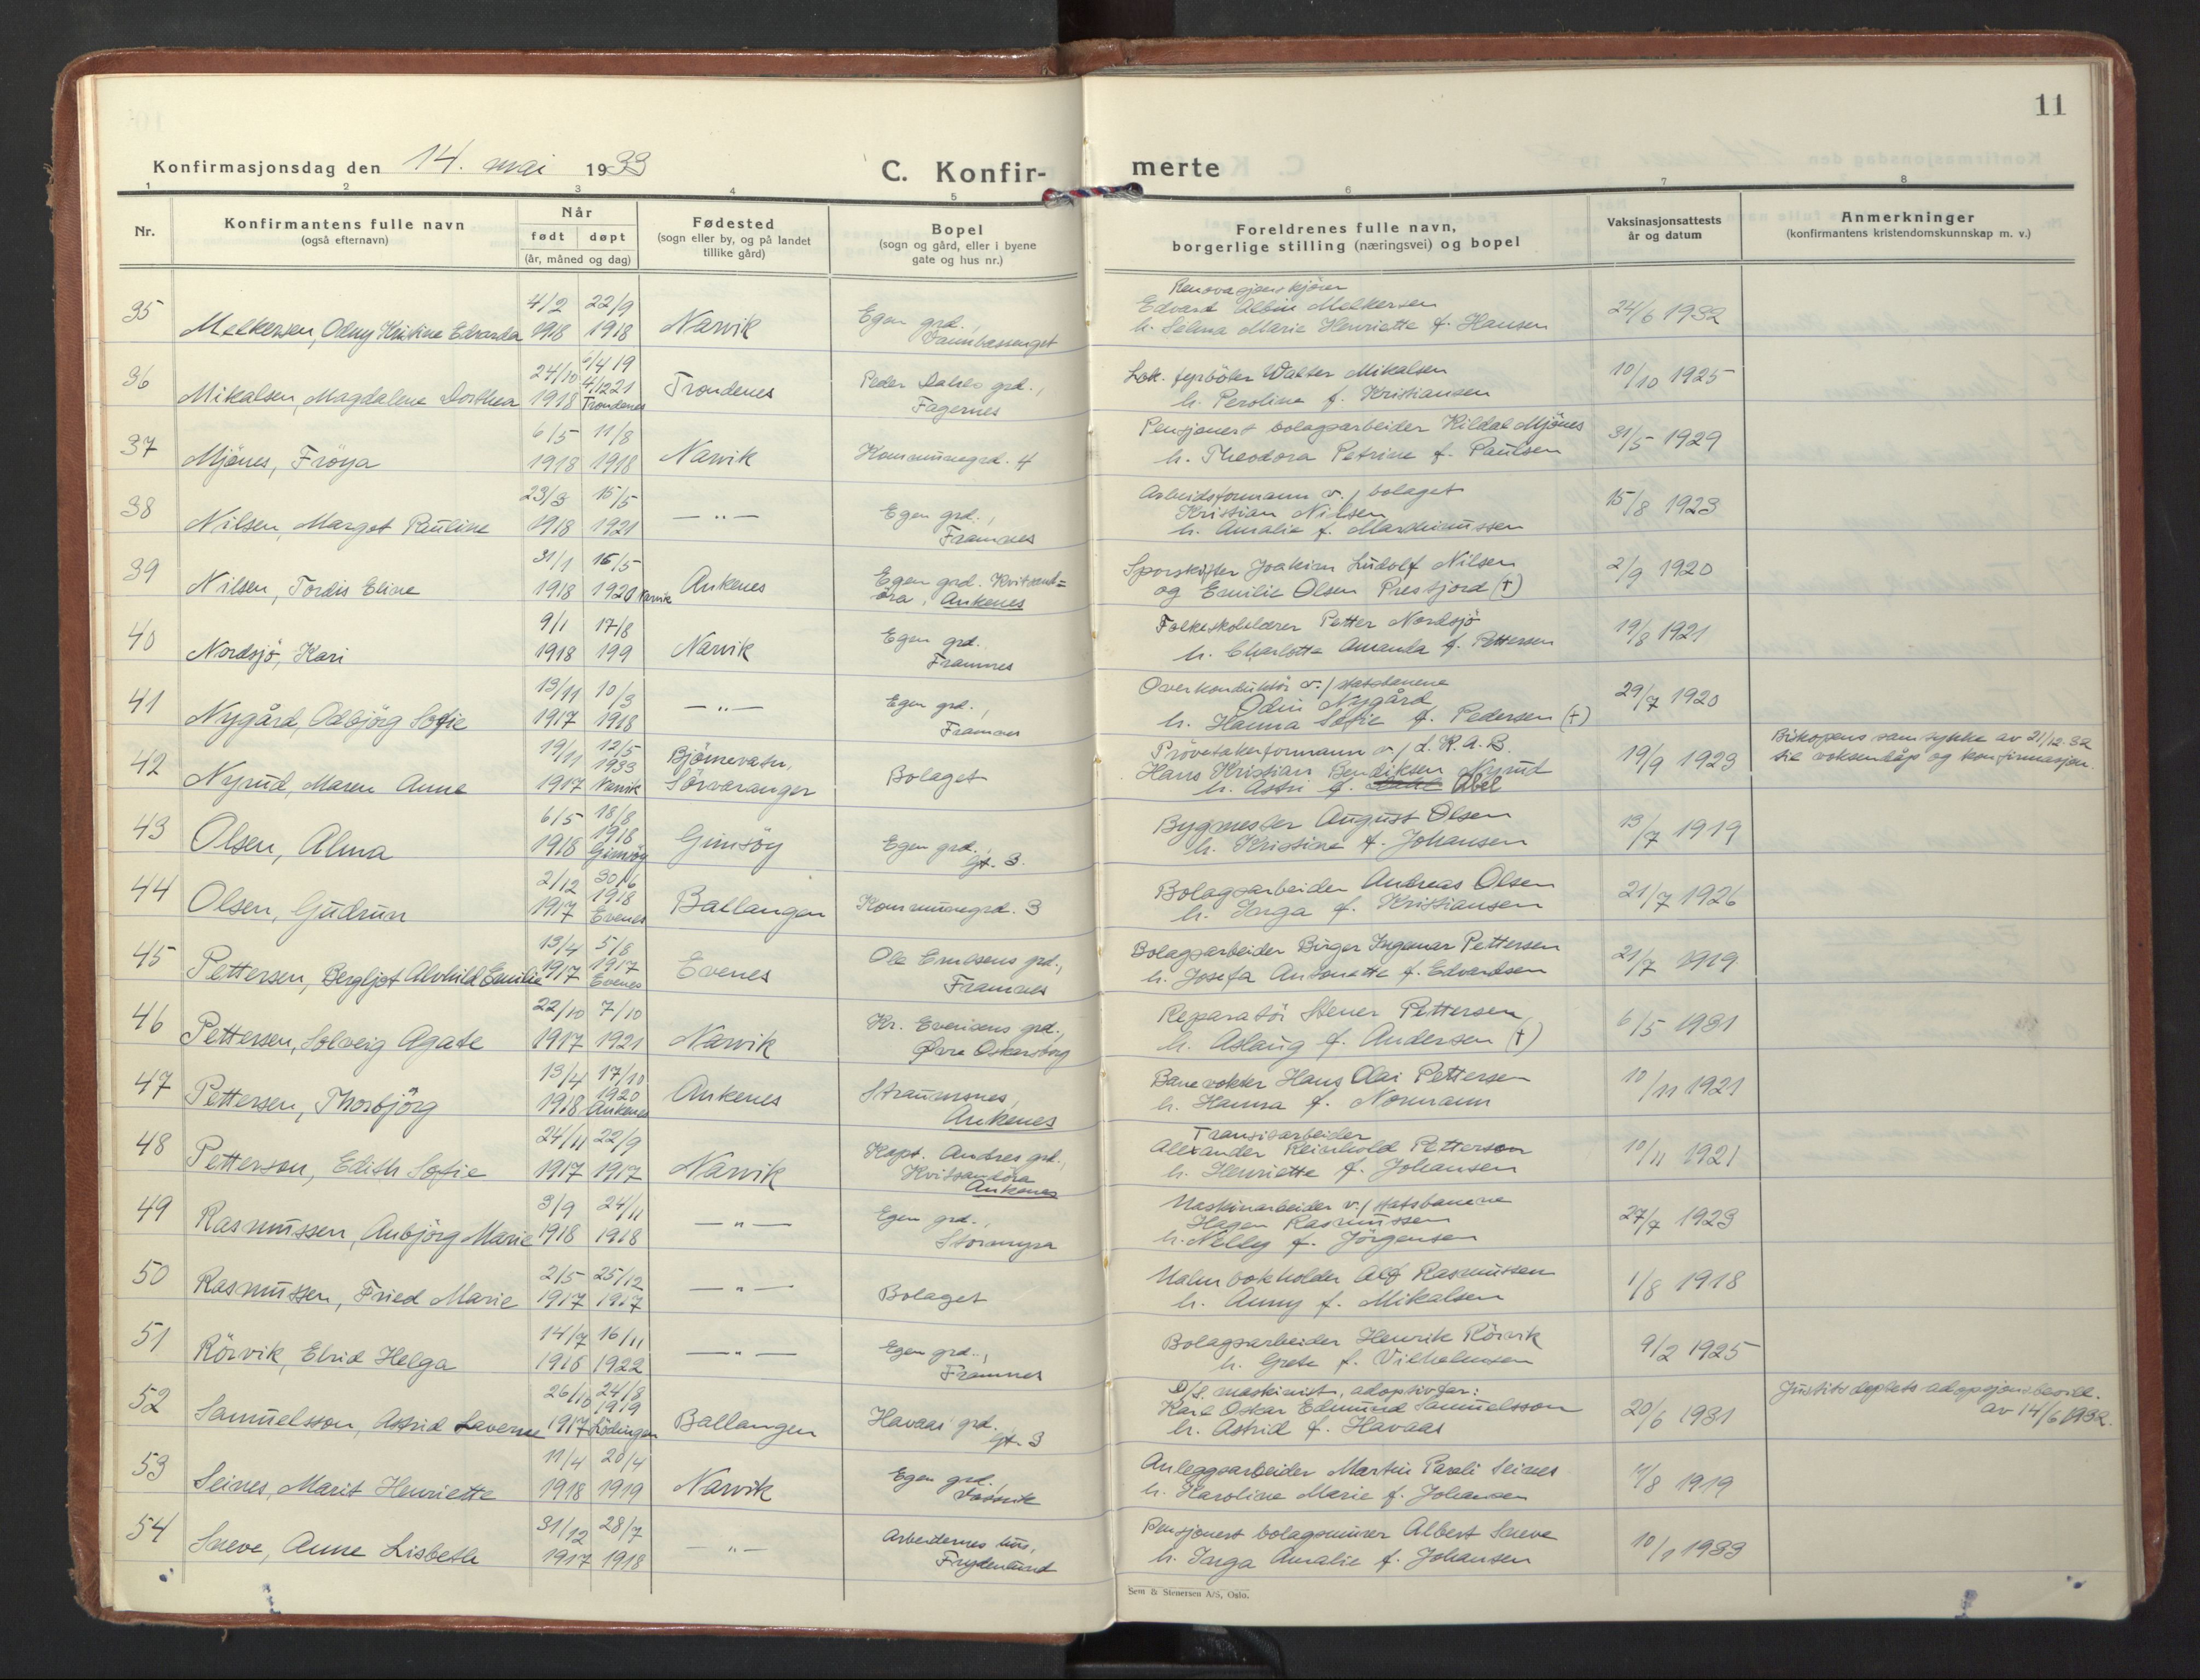 11
Konfirmasjonsdag den 14. mai 1933
C. Konfir-merte
1 2 3 4 5 6 7 8
Nr.
Konfirmantens fulle navn
(også efternavn)
Når
født døpt
(år, måned og dag)
Fødested
(sogn eller by, og på landet
tillike gård)
Bopel
(sogn og gård, eller i byene
gate og hus nr.)
Foreldrenes fulle navn,
borgerlige stilling (næringsvei) og bopel
Vaksinasjonsattests
år og datum
Anmerkninger
(konfirmantens kristendomskunnskap m. v.)
35 Melkersen, Odny Kristine Edvarda 4/2 1918 22/9 1918 Narvik Egen grd.,
Edvard Albin Melkersen
h. Selma Marie Henriette f. Hansen 24/6 1932
36 Mikalsen, Magdalene Dorthea 24/10 1918 6/4 19 4/12 21 Trondenes Trondenes Peder Dahls grd.,
Fagernes
Lok. fyrbøter Walter Mikalsen
h. Peroline f. Kristiansen 10/10 1925
37 Mjönes, Fröya 6/5 1918 11/8 1918 Narvik Kommunegrd. 4
Pensjonert bolagsarbeider Hildal Mjönes
h. Theodora Petrine f. Paulsen 31/5 1929
38 Nilsen, Margot Pauline 23/3 1918 15/5 1921 —"— Egen grd.,
Framnes
Arbeidsformann v./ bolaget
Kristian Nilsen
h. Amalie f. 15/8 1923
39 Nilsen, Tordis Eline 31/1 1918 16/5 1920 Narvik Ankenes Egen grd. Kvitsand=
öra, Ankenes
Sporskifter Joakim Ludolf Nilsen
og Emilie Olsen Prestjord (†) 2/9 1920
40 Nordsjö, Kari 9/1 1918 17/8 199 Narvik Egen grd.
Framnes
Folkeskolelærer Petter Nordsjö
h. Charlotte Amanda f. Pettersen 19/8 1921
41 Nygård, Odbjörg Sofie 13/11 1917 10/3 1918 —"— Egen grd.,
Framnes
Overkonduktör v./ statsbanene
Odin Nygård
h. Hanna Sofie f. Pedersen (†) 29/7 1920
42 Nyrud, Maren Anne 19/11 1917 12/5 1933 Narvik Björnevatn,
Sörvaranger Bolaget
Prövetakerformann v./ L.K.A.B.
Hans Kristian Bendiksen Nyrud
h. Astri f. Abel 19/9 1923
Biskopens samtykke av 21/12-32
til voksendåp og konfirmasjon.
43 Olsen, Alma 6/5 1918 18/8 1918 Gimsöy Gimsöy Egen grd.,
Gt. 3.
Bygmester August Olsen
h. Kristine f. Johansen 13/7 1919
44 Olsen, Gudrun 2/12 1917 30/6 1918 Evenes Ballangen Kommunegrd. 3
Bolagsarbeider Andreas Olsen
h. Inga f. Kristiansen 21/7 1926
45 Pettersen, Bergljot Alvhild Emilie 13/4 1917 5/8 1917 Evenes Evenes Ole grd.,
Framnes
Bolagsarbeider Birger Ingemar Pettersen
h. Josefa Antonette f. Edvardsen 21/7 1919
46 Pettersen, Solveig Agate 22/10 1917 7/10 1921 Narvik Kr. Evensens grd.,
Øvre Oskarsborg
Reparatör Stener Pettersen,
h. Aslaug f. Andersen (†) 6/5 1931
47 Pettersen, Thorbjörg 13/4 1918 17/10 1920 Ankenes Ankenes Straumsnes,
Ankenes
Banevokter Hans Olai Pettersen
h. Hanna f. Normann 10/11 1921
48 Petterson, Edith Sofie 24/11 1917 22/9 1917 Narvik Kapt. Andres grd.,
Kvitsandöra
Ankenes
Transitarbeider
Alexander Reinhold Petterson
h. Henriette f. Johansen 10/11 1921
49 Rasmussen, Aubjörg Marie 3/9 1918 24/11 1918 —"— Egen grd.,
Stormyra
Maskinarbeider v./ statsbanene
Hagen Rasmussen
h. Nelly f. Jörgensen 27/7 1923
50 Rasmussen, Fried Marie 2/5 1917 25/12 1917 —"— Bolaget
Malmbokholder Alf Rasmussen
h. Anny f. Mikalsen 1/8 1918
51 Rörvik, Elrid Helga 14/7 1918 16/11 1922 —"— Egen grd..,
Framnes
Bolagsarbeider Henrik Rörvik
h. Grete f. Vilhelmsen 9/2 1925
52 Samuelsson, Astrid Laverne 26/10 1917 24/8 1919 Lödingen Ballangen Havaas grd.
Gt. 3
D/S. maskinist, adoptivfar:
Karl Oskar Edmund Samuelsson
h. Astrid f. Havaas 20/6 1931
Justitsdeptets adopsjonsbevill.
av 14/6 1932.
53 Seines, Marit Henriette 11/4 1918 20/4 1919 Narvik Egen grd.,
Anleggsarbeider Martin Parali Seines
h. Karoline Marie f. Johansen 11/8 1919
54 Sneve, Anne Lisbeth 31/12 1917 28/7 1918 —"— Arbeidernes hus,
Frydenlund
Pensjonert bolagsmurer Albert Sneve
h. Inga Amalie f. Johansen 10/1 1933
Sem & Stenersen A/S, Oslo.